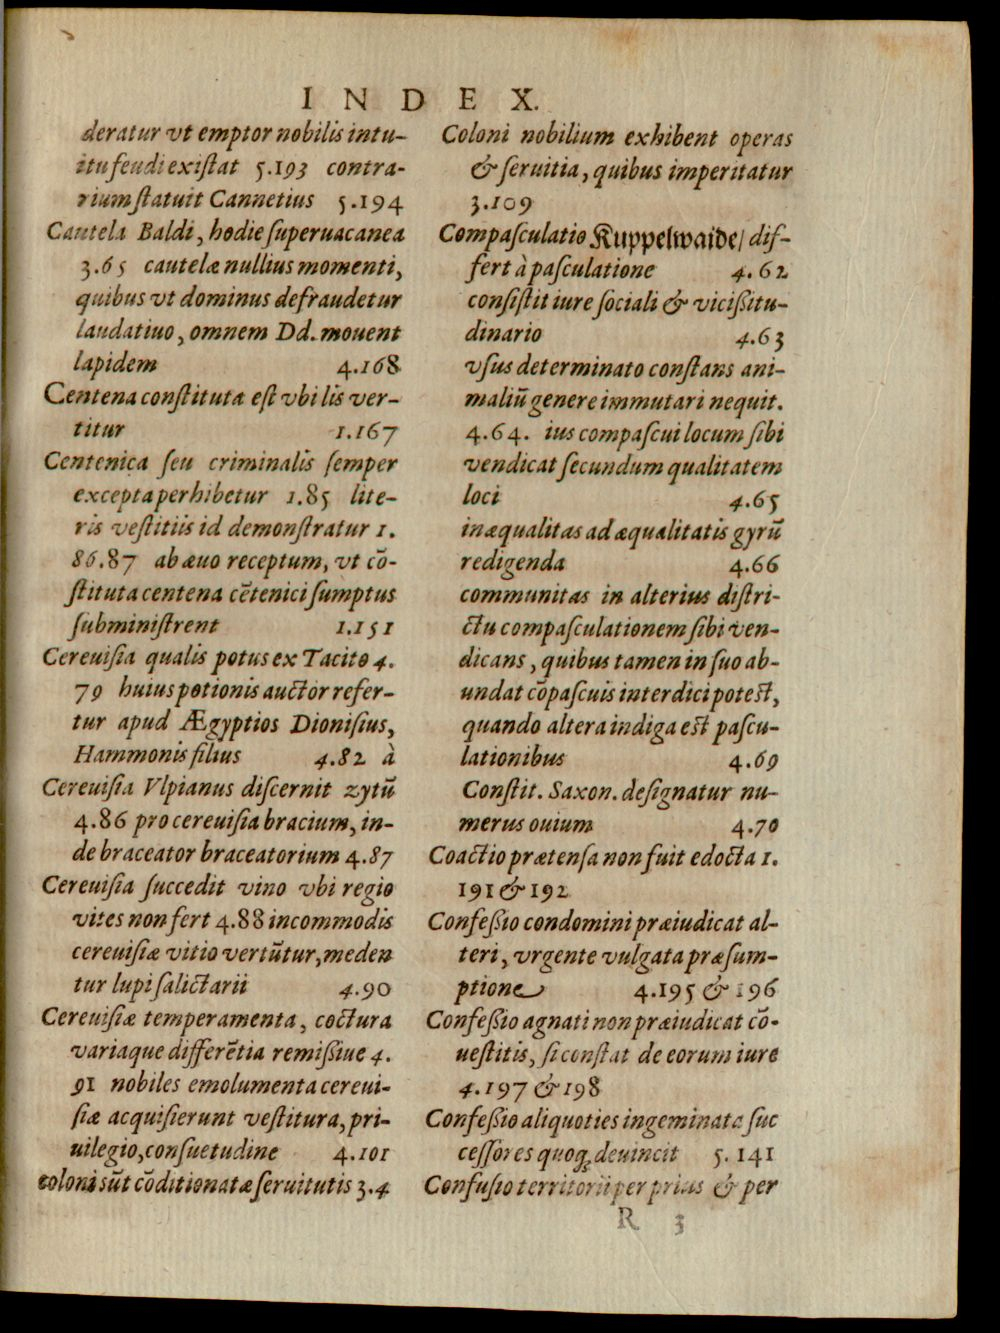 INDEX.
deratur vt emptor nobilis intu-
itu feudi existat 5.193 contra-
rium statuit Cannetius 5.194
Cautela Baldi, hodie superuacanea
3.65 cautelæ nullius momenti,
quibus vt dominus defraudetur
laudatiuo, omnem Dd. mouent
lapidem 4.168
Centena constituta est vbi lis ver-
titur 1.167
Centenica seu criminalis semper
excepta perhibetur 1.85 lite-
ris vestitiis id demonstratur 1.
86.87 ab æuo receptum, vt cō-
stituta centena cētenici sumptus
subministrent 1.151
Cereuisia qualis potus ex Tacito 4.
79 huius potionis auctor refer-
tur apud Ægyptios Dionisius,
Hammonis filius 4.82 à
Cereuisia Vlpianus discernit zytū
4.86 pro cereuisia bracium, in-
de braceator braceatorium 4.87
Cereuisia succedit vino vbi regio
vites non fert 4.88 incommodis
cereuisiæ vitio vertūtur, meden
tur lupi salictarii 4.90
Cereuisiæ temperamenta, coctura
variaque differētia remißiue 4.
91 nobiles emolumenta cereui-
siæ acquisierunt vestitura, pri-
uilegio, consuetudine 4.101
coloni sūt cōditionatæ seruitutis 3.4
Coloni nobilium exhibent operas
& seruitia, quibus imperitatur
3.109
Compasculatio Kuppelwaide/ dif-
fert à pasculatione 4.62
consistit iure sociali & vicißitu-
dinario 4.63
vsus determinato constans ani-
maliū genere immutari nequit.
4.64. ius compascui locum sibi
vendicat secundum qualitatem
loci 4.65
inæqualitas ad æqualitatis gyrū
redigenda 4.66
communitas in alterius distri-
ctu compasculationem sibi ven-
dicans, quibus tamen in suo ab-
undat cōpascuis interdici potest,
quando altera indiga est pascu-
lationibus 4.69
Constit. Saxon. designatur nu-
merus ouium 4.70
Coactio prætensa non fuit edocta 1.
191 & 192
Confeßio condomini præiudicat al-
teri, vrgente vulgata præsum-
ptione 4.195 & 196
Confeßio agnati non præiudicat cō-
uestitis, si constat de eorum iure
4.197 & 198
Confeßio aliquoties ingeminata suc
cessores quoq; deuincit 5.141
Confusio territorii per prius & per
R 3